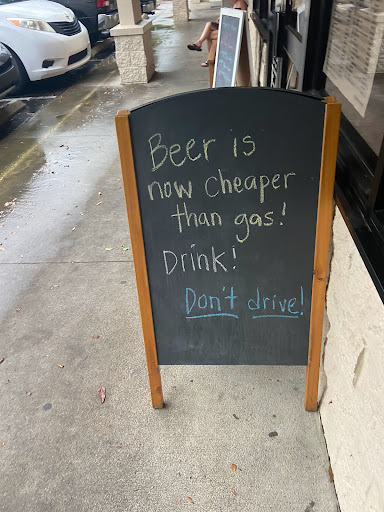 Beer is
now cheaper
than gas!
Drink!
Don't drive!